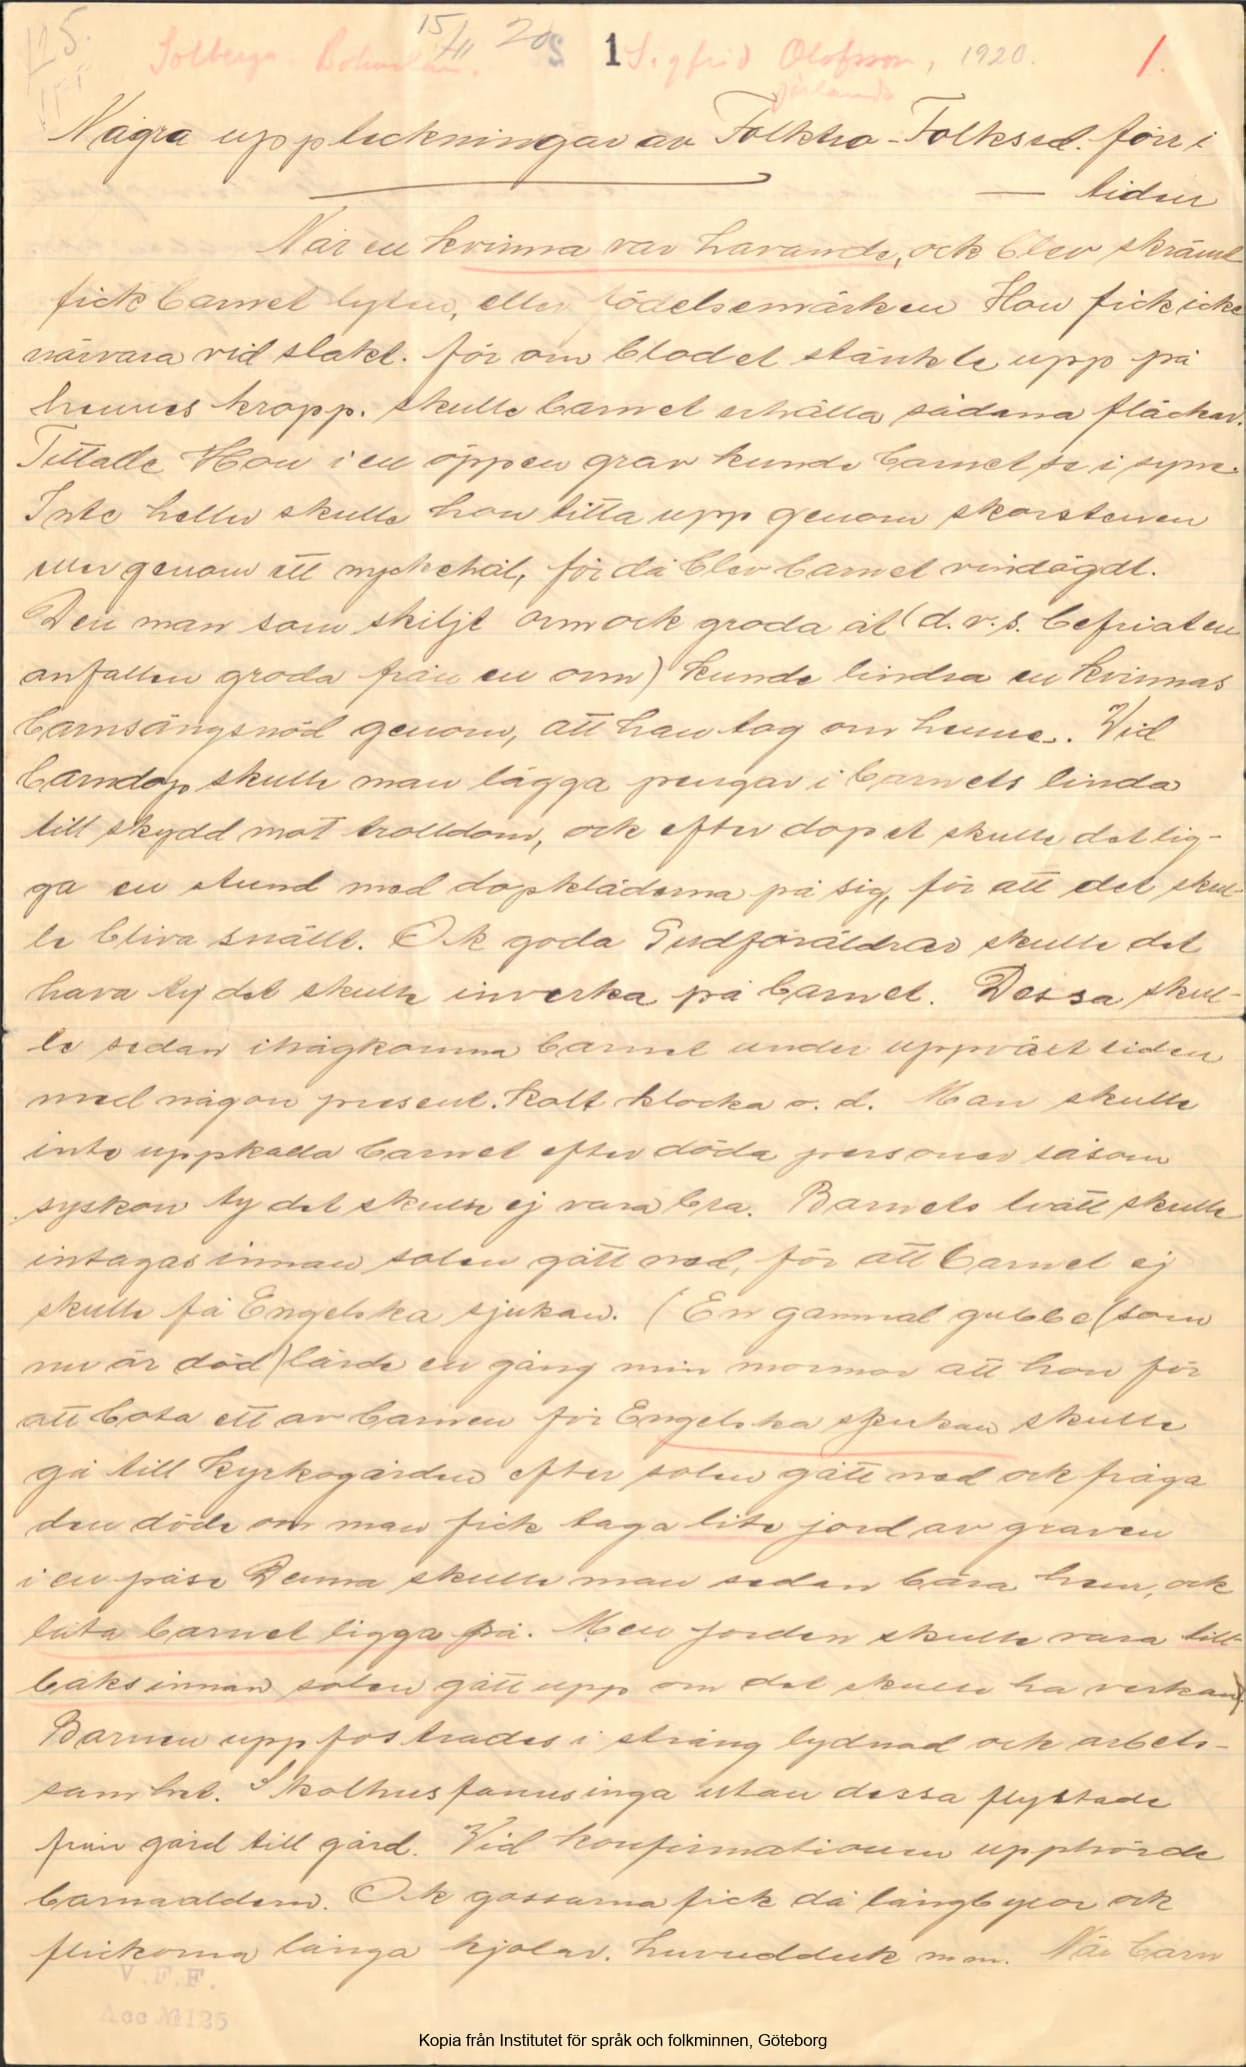 125.
15/11 20 S 1 Sigfrid Olofsson, 1920. 1.
Solberga Bohuslän. Jörlanda
Några uppteckningar av Folktro-Folksed. förr i
tiden
När en kvinna var havande, ock blev skrämd
fick barnet lyten, eller födelsemärken Hon fick icke
närvara vid slakt. för om blodet stänkte upp på
hennes kropp. skulle barnet erhålla sådana fläckar.
Tittade Hon i en öppen grav kunde barnet se i syne.
Inte heller skulle hon titta upp genom skorstenen
eller genom ett nyckehål, för då blev barnet vindögdt.
Den man som skiljt orm ock groda åt (d.v.s. befriat en
anfallen groda från en orm) kunde lindra en kvinnas
barnsängsnöd genom, att han tog om henne. Vid
barndop skulle man lägga pengar i barnets linda
till skydd mot trolldom, ock efter dopet skulle det lig-
ga en stund med dopkläderna på sig, för att det skul-
le bliva snällt. Ock goda Gudföräldrar skulle det
hava ty det skulle inverka på barnet. Dessa skul-
le sedan ihågkomma barnet under uppväxttiden
med någon present. kolt klocka o. d. Man skulle
inte uppkalla barnet efter döda personer såsom
syskon ty det skulle ej vara bra. Barnets tvätt skulle
intagas innan solen gått ned, för att barnet ej
skulle få Engelska sjukan. (En gammal gubbe (som
nu är död) lärde en gång min mormor att hon för
att bota ett av barnen för Engelska sjukan skulle
gå till kyrkogården efter solen gått ned ock fråga
den döde om man fick taga lite jord av graven
i en påse Denna skulle man sedan bära hem, ock
låta barnet ligga på. Men jorden skulle vara till-
baks innan solen gått upp om det skulle ha verkan).
Barnen uppfostrades i sträng lydnad ock arbets-
samhet. Skolhus fanns inga utan dessa flyttade
från gård till gård. Vid konfirmationen upphörde
barnaåldern. Ock gossarna fick då långbyxor ock
flickorna långa kjolar. huvudduk m m. När barn
V.F.F.
Acc № 125
Kopia från Institutet för språk och folkminnen, Göteborg